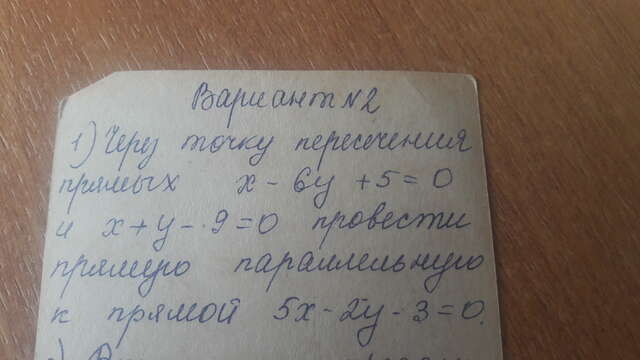 Вариант №2
1) Через точку пересечения
прямых x - 6y + 5 = 0
и x + y - 9 = 0 провести
прямую параллельную
к прямой 5x - 2y - 3 = 0.